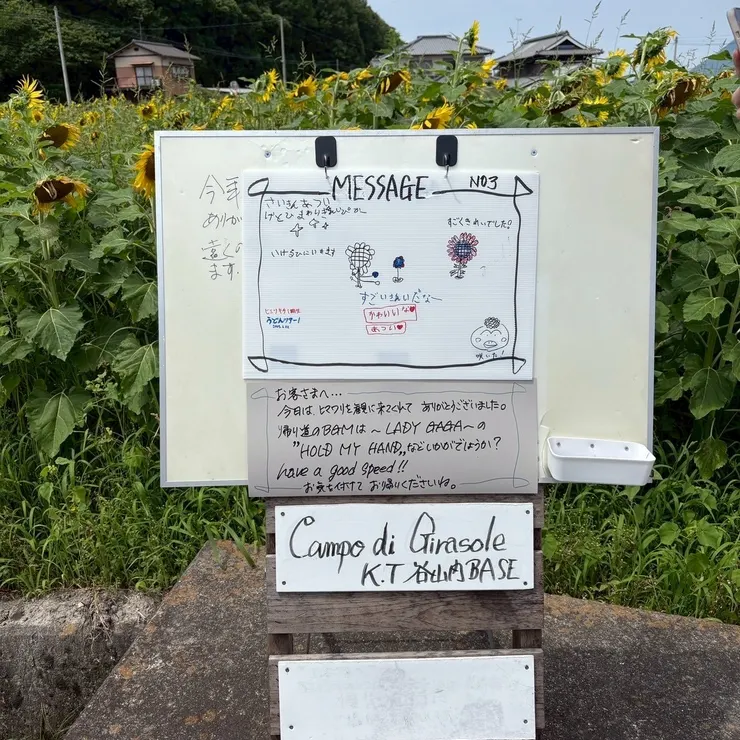 今年
ありが
遠くの
ます.
MESSAGE NO3
さいきんあつい
けどひまわり
すごくきれいでした!
いけるひにいきます
すごいきれいだなー
かわいいな♥
あつい♥
咲いた!
お客さまへ…
今日は、ヒマワリを観に来てくれて ありがとうございました。
帰り道のBGMは〜LADY GAGA〜の
"HOLD MY HAND„などいかがでしょうか?
have a good speed!!
お気を付けて お帰りくださいね。
Campo di Girasole
K.T 谷山内 BASE